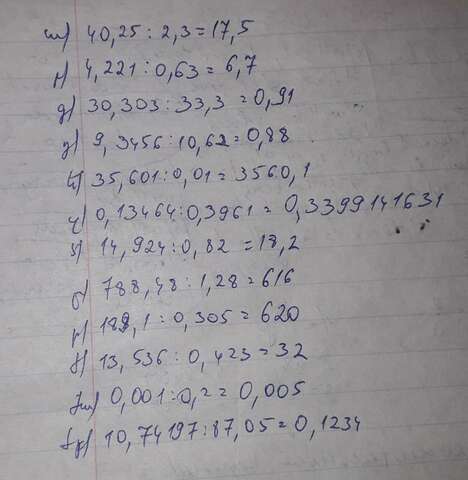 m) 40,25 : 2,3 = 17,5
г) 4,221 : 0,63 = 6,7
g) 30,303 : 33,3 = 0,91
g) 9,3456 : 10,62 = 0,88
35,601 : 0,01 = 3560,1
0,13464 : 0,3961 = 0,3399141631
14,924 : 0,82 = 18,2
788,48 : 1,28 = 616
189,1 : 0,305 = 620
13,536 : 0,423 = 32
0,001 : 0,2 = 0,005
10,74197 : 87,05 = 0,1234